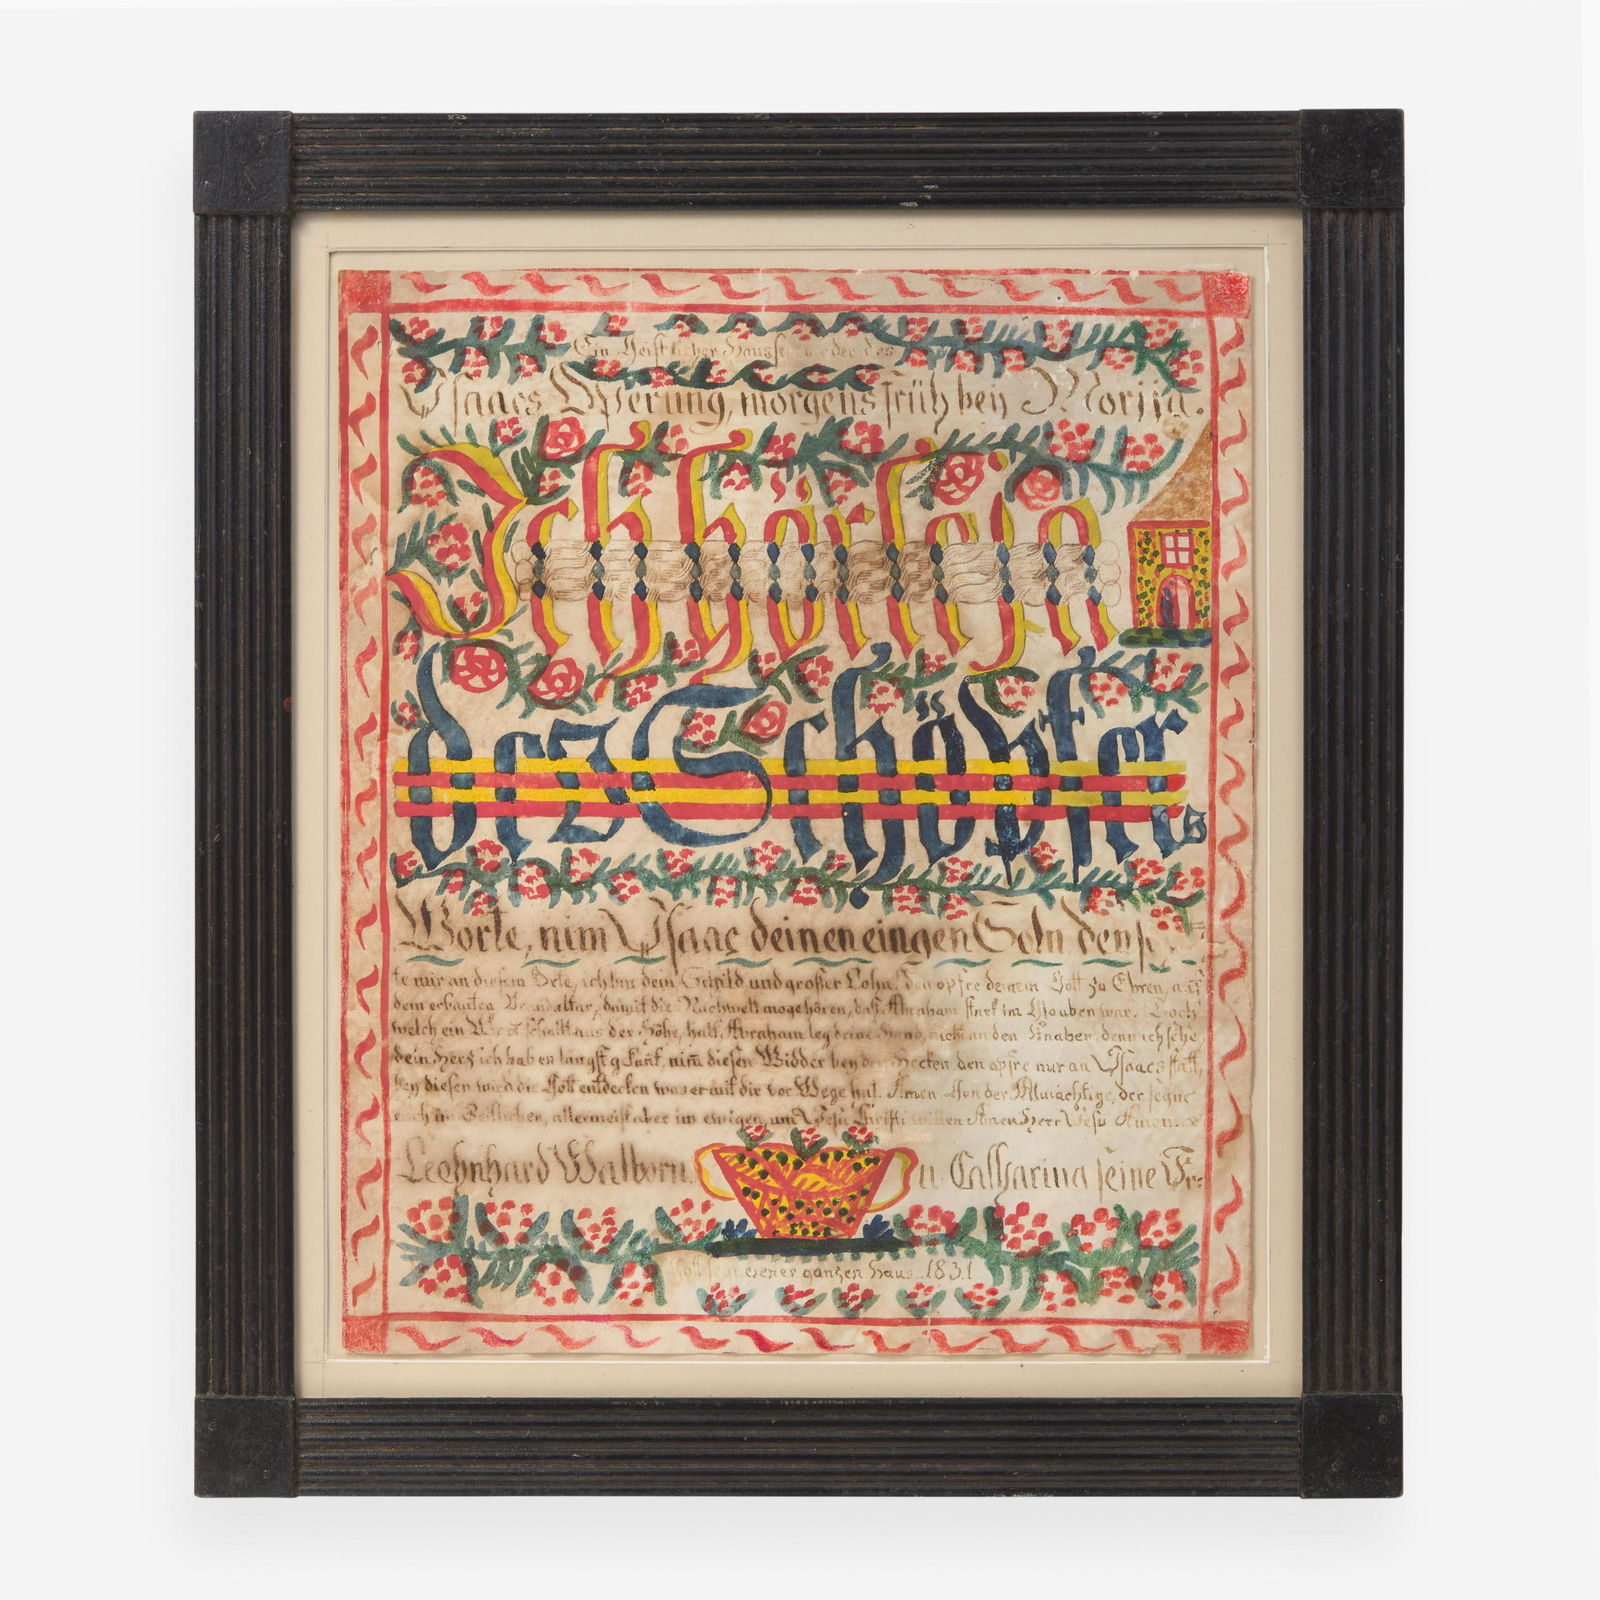 Ein Geistlicher Haussegen oder des
Isaacs Opferung, morgens früh bey Morija.
Ich hör allein
des Schöpfers
Worte, nim Isaac deinen eingen Sohn den
te mir an diesem Orte, ich bin dein Schild und großer Lohn. den opfre deinem Gott zu Ehren, auf
dem erbauten Brandaltar, damit die Nachwelt möge hören, daß Abraham stark im Glauben war. Doch
welch ein Wort schallt aus der Höhe, halt Abraham leg deine Hand, nicht an den Knaben, denn ich sehe
dein Herz ich hab es längst gekant, nim diesen Widder bey der Hecken den opfre nur an Isaacs statt,
bey diesen wird dir Gott entdecken was er mit dir vor Wege hat. Amen der Allmächtige, der segne
euch im Zeitlichen, allermeist aber im ewigen, um Jesu Christi willen Amen Herr Jesu Amen.
Leohnhard Walborn, u. Catharina seine Fr:
Gott segn eierer ganzen Haus. 1831